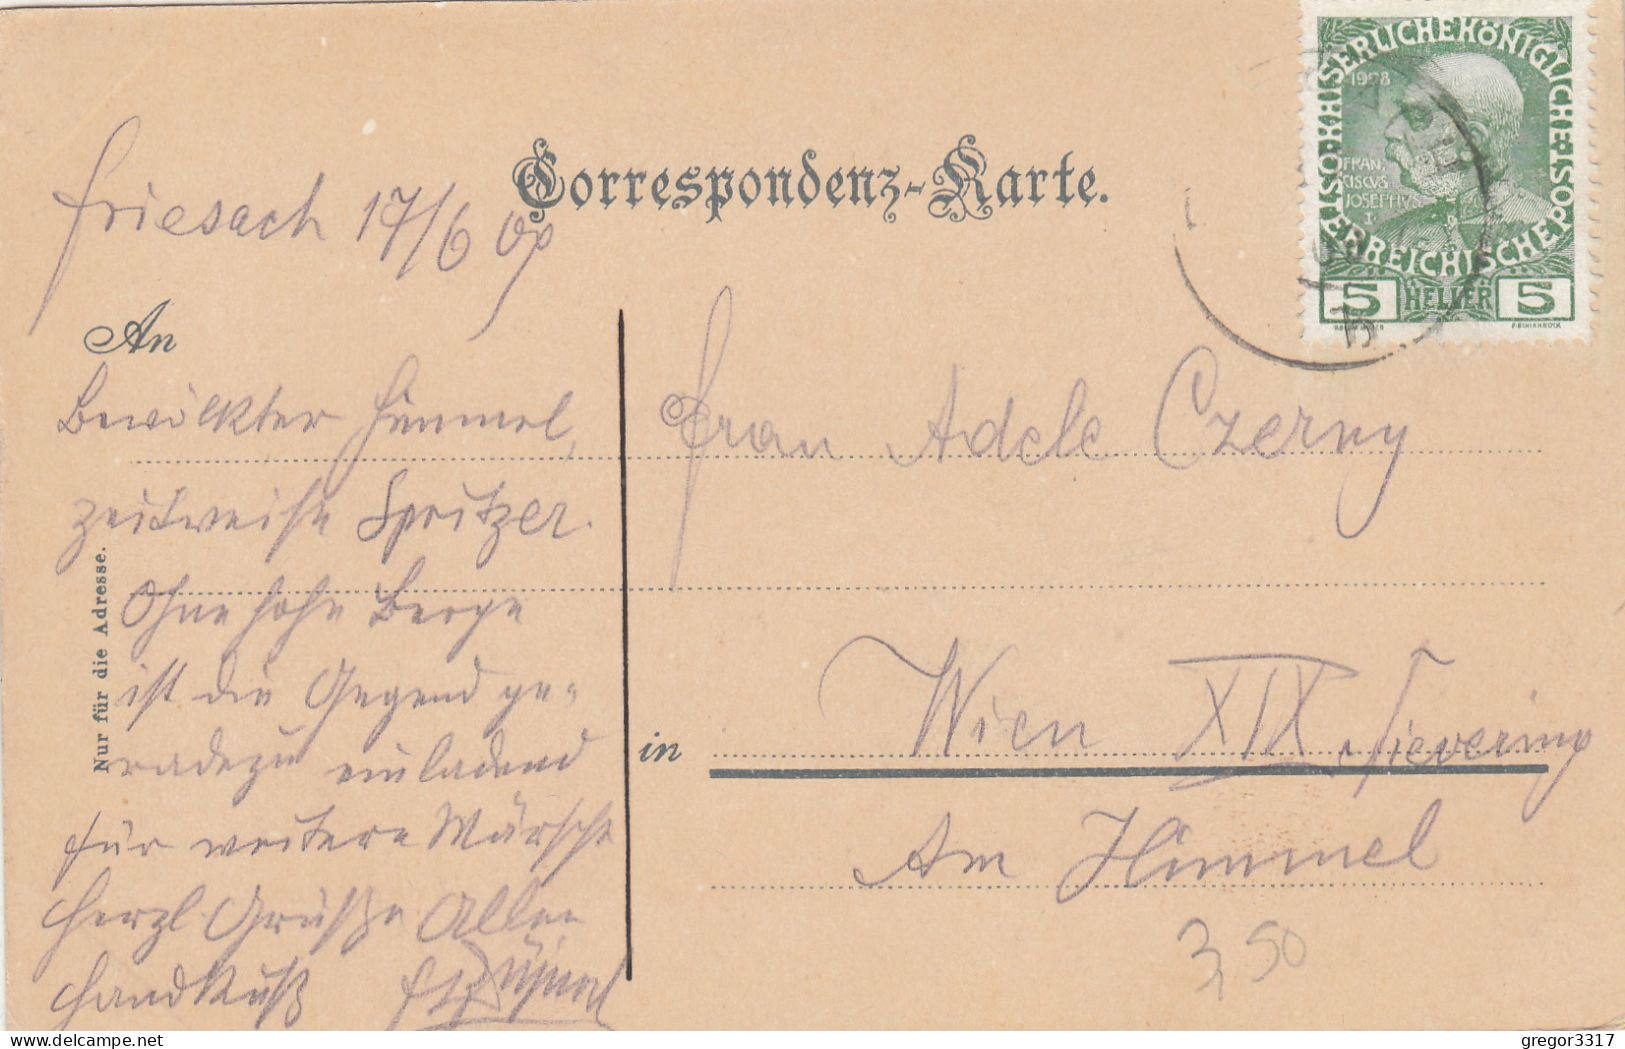 Correspondenz-Karte.
Friesach 17/6 09
KAISERLICHE KÖNIGLICHE
ÖSTERREICHISCHE POST
1908
FRAN
CISCVS
IOSEPHVS
I.
5 HELLER 5
An
Bewölkter Himmel,
zeitweise Spritzer.
Ohne hohe Berge
ist die Gegend ge-
radezu einladend
für weitere Märsche
Herzl Grüße Allen
Handkuß
Nur für die Adresse.
Frau Adele Czerny
in Wien XIX, Sievering
Am Himmel
3,50
delcampe.net
gregor3317